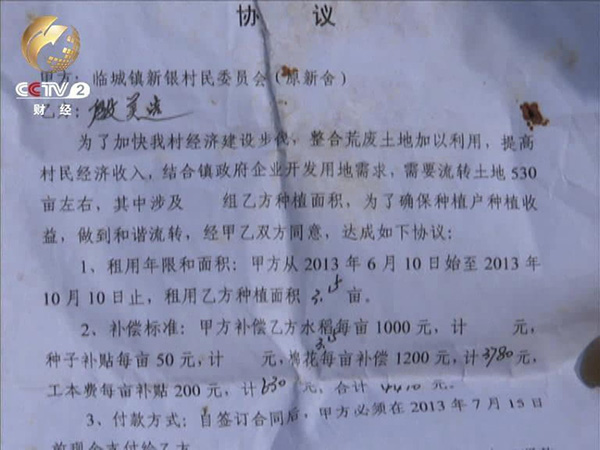 CCTV 2
财经
协 议
甲方：临城镇新银村民委员会（原新舍）
乙方：
为了加快我村经济建设步伐，整合荒废土地加以利用，提高
村民经济收入，结合镇政府企业开发用地需求，需要流转土地530
亩左右，其中涉及 组乙方种植面积，为了确保种植户种植收
益，做到和谐流转，经甲乙双方同意，达成如下协议：
1、租用年限和面积：甲方从 2013 年 6 月 10 日始至 2013 年
10 月 10 日止，租用乙方种植面积 3.15 亩。
2、补偿标准：甲方补偿乙方水稻每亩 1000 元，计 元，
3.15
种子补贴每亩 50 元，计 元，棉花每亩补偿 1200 元，计3780元，
工本费每亩补贴 200 元，计630元，合计 4410 元。
3、付款方式：自签订合同后，甲方必须在 2013 年 7 月 15 日
前现金支付给乙方